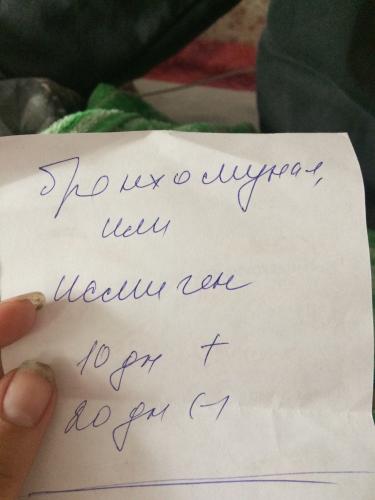 бронхомунал,
или
исмиген
10 дн +
20 дн (-)